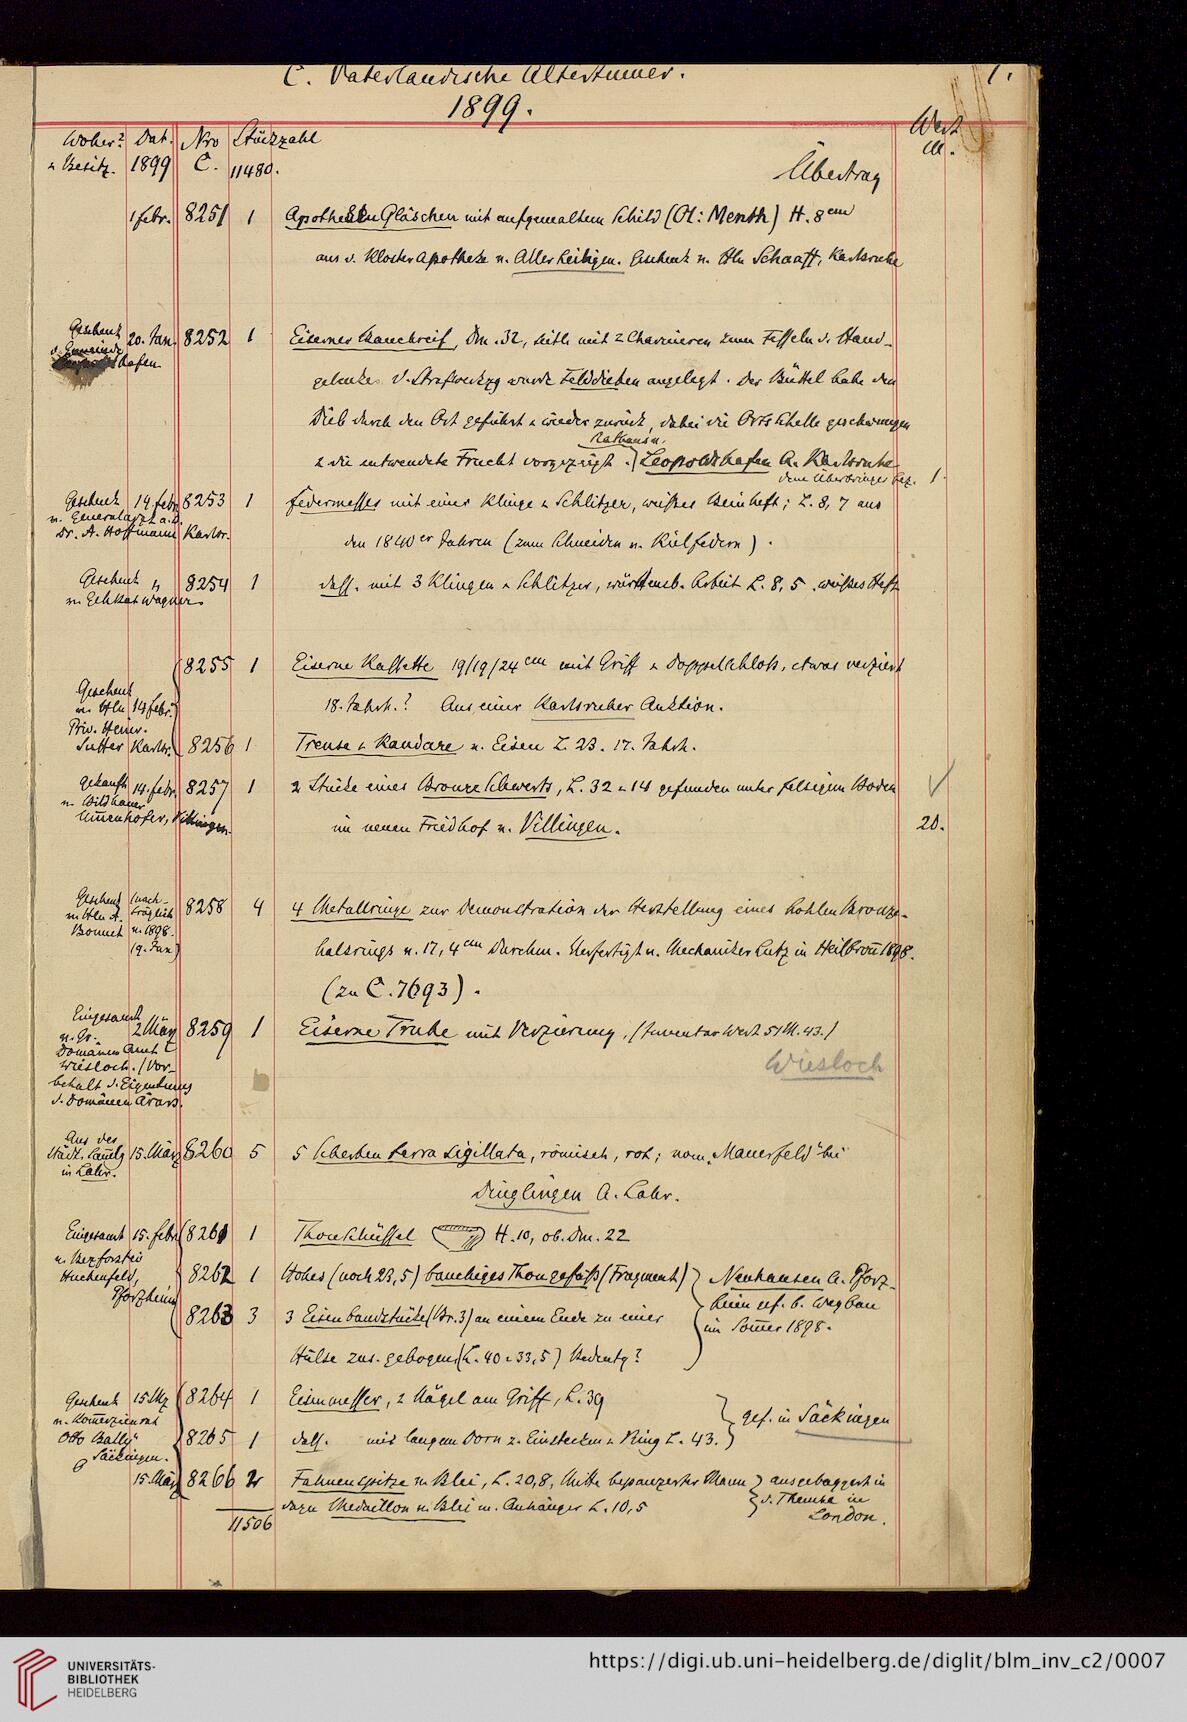 C. Vaterländische Altertümer. 1.
1899.
Woher? Dat. Nro Stückzahl Wert
u. Besitz. 1899 C. 11480. M.
Übertrag
1 Febr. 8251 1 Apotheken Gläschen mit aufgemaltem Schild (Ol: Menth) H. 8 cm
aus d. Kloster Apotheke v. Allerheiligen. Geschenk v. Hln Schaaff, Karlsruhe
Geschenk 20. Jan. 8252 1 Eiserner Bauchreif, Dm. 32, seitl. mit 2 Charnieren zum Fesseln d. Hand-
d. Gemeinde
hafen
gelenke. D. Strafwerkzg wurde Felddieben angelegt. Der Büttel habe den
Dieb durch den Ort geführt u. wieder zurück, dabei die Ortsschelle geschwungen
Rathaus v.
u. die entwendete Frucht vorgezeigt. Leopoldshafen A. Karlsruhe
dem Überbringer bez. 1.
Geschenk 14. Febr. 8253 1 Federmesser mit einer Klinge u. Schlitzer, weißes Beinheft; L. 8,7 aus
v. Generalarzt a. D.
Dr. A. Hoffmann Karlsr.
den 1840er Jahren (zum Schneiden v. Kielfedern).
Geschenk " 8254 1 dass. mit 3 Klingen u. Schlitzer, württemb. Arbeit L. 8,5. weißes Heft
v. GehRat Wagner
8255 1 Eiserne Kassette 19/19/24 cm mit Griff u. Doppelschloß, etwas verziert
Geschenk
v. Hln 14 Febr.
18. Jahrh.? Aus einer Karlsruher Auktion.
Priv. Heinr.
Sutter Karlsr. 8256 1 Trense u. Kandare v. Eisen L. 23. 17. Jahrh.
gekauft 14. Febr. 8257 1 2 Stücke eines Bronzeschwerts, L. 32 u. 14 gefunden unter felsigem Boden
v. Bildhauer
Ummenhofer, Villingen.
im neuen Friedhof v. Villingen. 20.
Geschenk (nach- 8258 4 4 Metallringe zur Demonstration der Herstellung eines hohlen Bronze-
v. Hln A. träglich
Bonnet v. 1898.
(9. Jan)
halsrings v. 17,4 cm Durchm. Verfertigt v. Mechaniker Lutz in Heilbronn 1898.
(zu C. 7693).
Eingesandt 2 März 8259 1 Eiserne Truhe mit Verzierung, (Inventar Wert 51 M. 43.)
v. Gr.
Domänen Amt
Wiesloch. (Vor-
Wiesloch
behalt d. Eigentums
d. Domänen Ärars.
Aus der
städt. Samlg 15. März 8260 5 5 Scherben terra sigillata, römisch, rot; vom „Mauerfeld" bei
in Lahr.
Dinglingen A. Lahr.
Eingesamt 15. Febr. 8261 1 Thonschüssel H. 10, ob. Dm. 22
v. Bezforstei
Huchenfeld, 8262 1 Hohes (noch 23,5) bauchiges Thongefäß (Fragment) Neuhausen A. Pforz-
Pforzheim
heim gef. b. Wegbau
8263 3 3 Eisenbandstücke (Br. 3) an einem Ende zu einer
im Somer 1898.
Hülse zus. gebogen (L. 40 u. 33,5) Bedeutg?
Geschenk 15 Mz 8264 1 Eisenmesser, 2 Nägel am Griff, L. 39
v. Komerzienrat
gef. in Säckingen
Otto Bally 8265 1 dass. mit langem Dorn z. Einstecken u. Ring L. 43.
Säckingen.
15. März 8266 2 Fahnenspitze v. Blei, L. 20,8, Mitte bepanzerter Mann ausgebaggert in
dazu Medaillon v. Blei m. Anhänger L. 10,5 d. Themse in
London.
11506
UNIVERSITÄTS-
BIBLIOTHEK
HEIDELBERG
https://digi.ub.uni-heidelberg.de/diglit/blm_inv_c2/0007